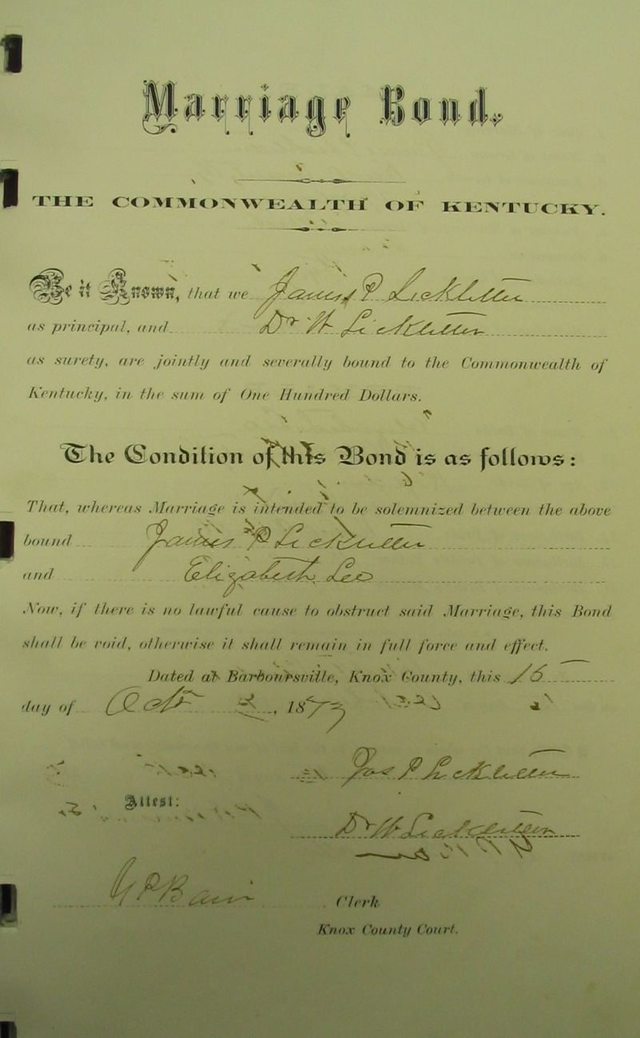 Marriage Bond.
THE COMMONWEALTH OF KENTUCKY.
Be it Known, that we James P Lickliter
as principal, and Dr W Lickliter
as surety, are jointly and severally bound to the Commonwealth of
Kentucky, in the sum of One Hundred Dollars.
The Condition of this Bond is as follows:
That, whereas Marriage is intended to be solemnized between the above
bound James P Lickliter
and Elizabeth Lee
Now, if there is no lawful cause to obstruct said Marriage, this Bond
shall be void, otherwise it shall remain in full force and effect.
Dated at Barboursville, Knox County, this 15
day of Octr, 1873
Jas P Lickliter
Attest:
Dr W Lickliter
Bain Clerk
Knox County Court.